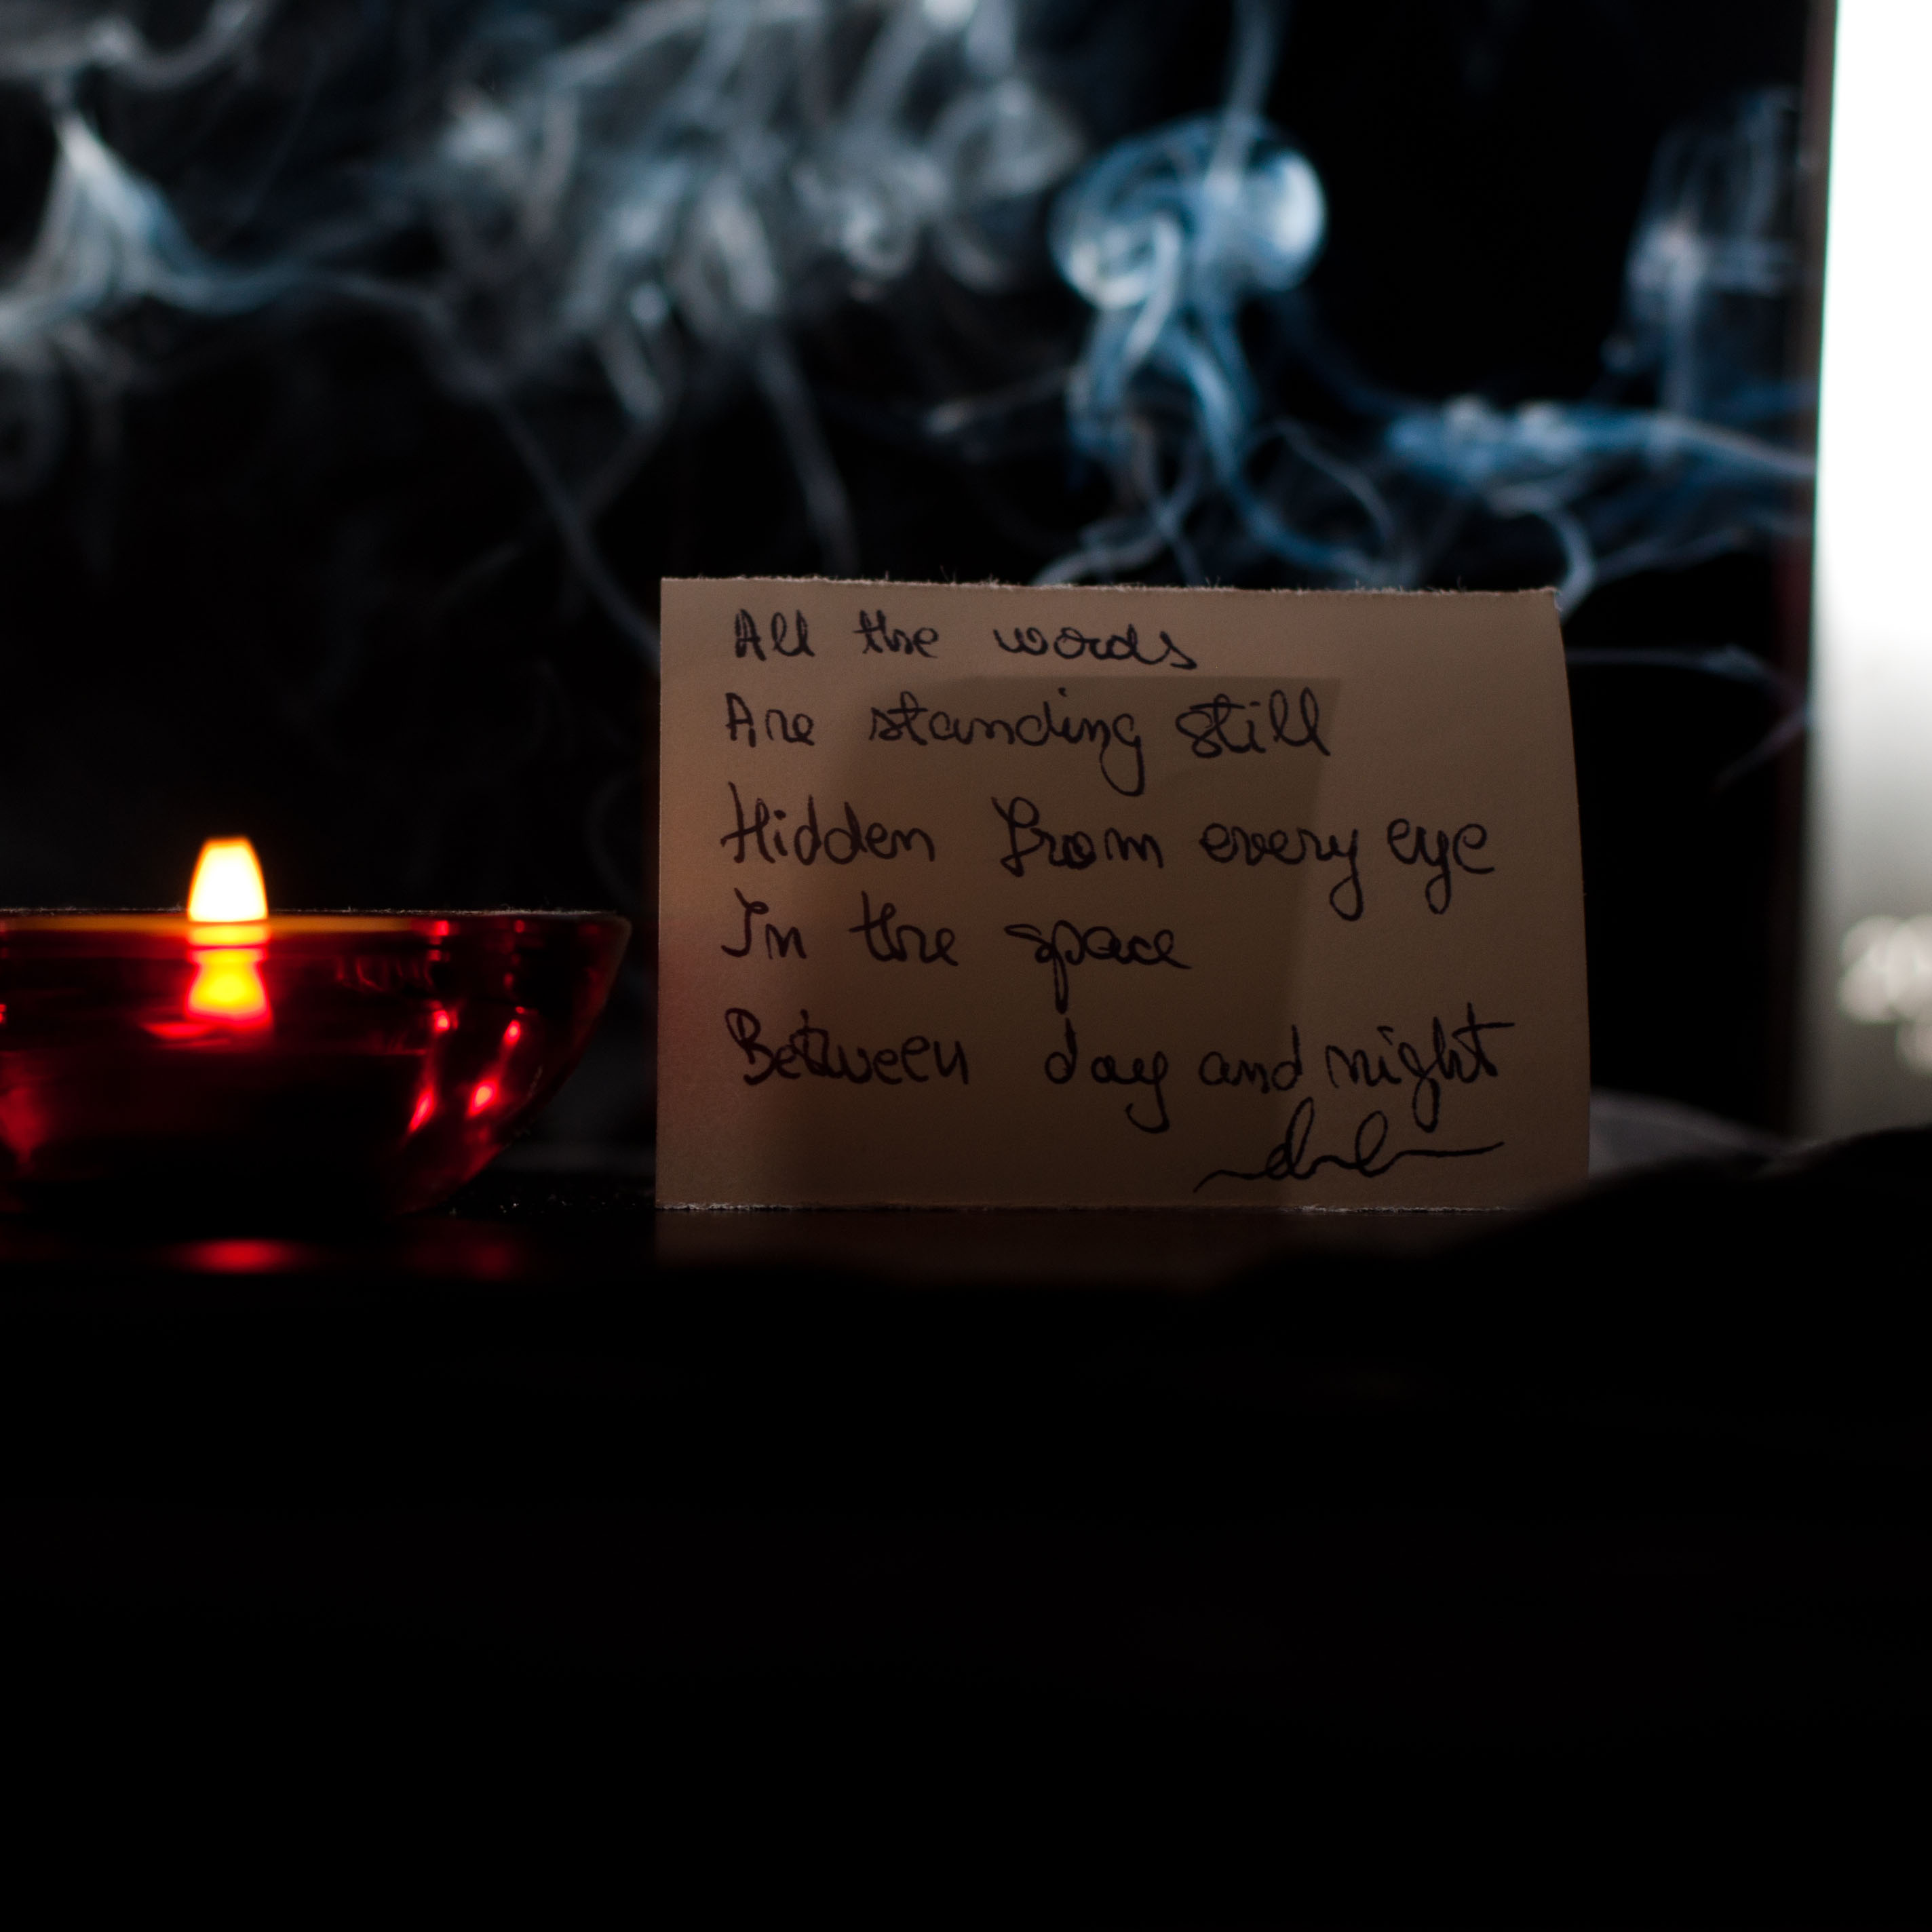 All the words
Are standing still
Hidden from every eye
In the space
Between day and night